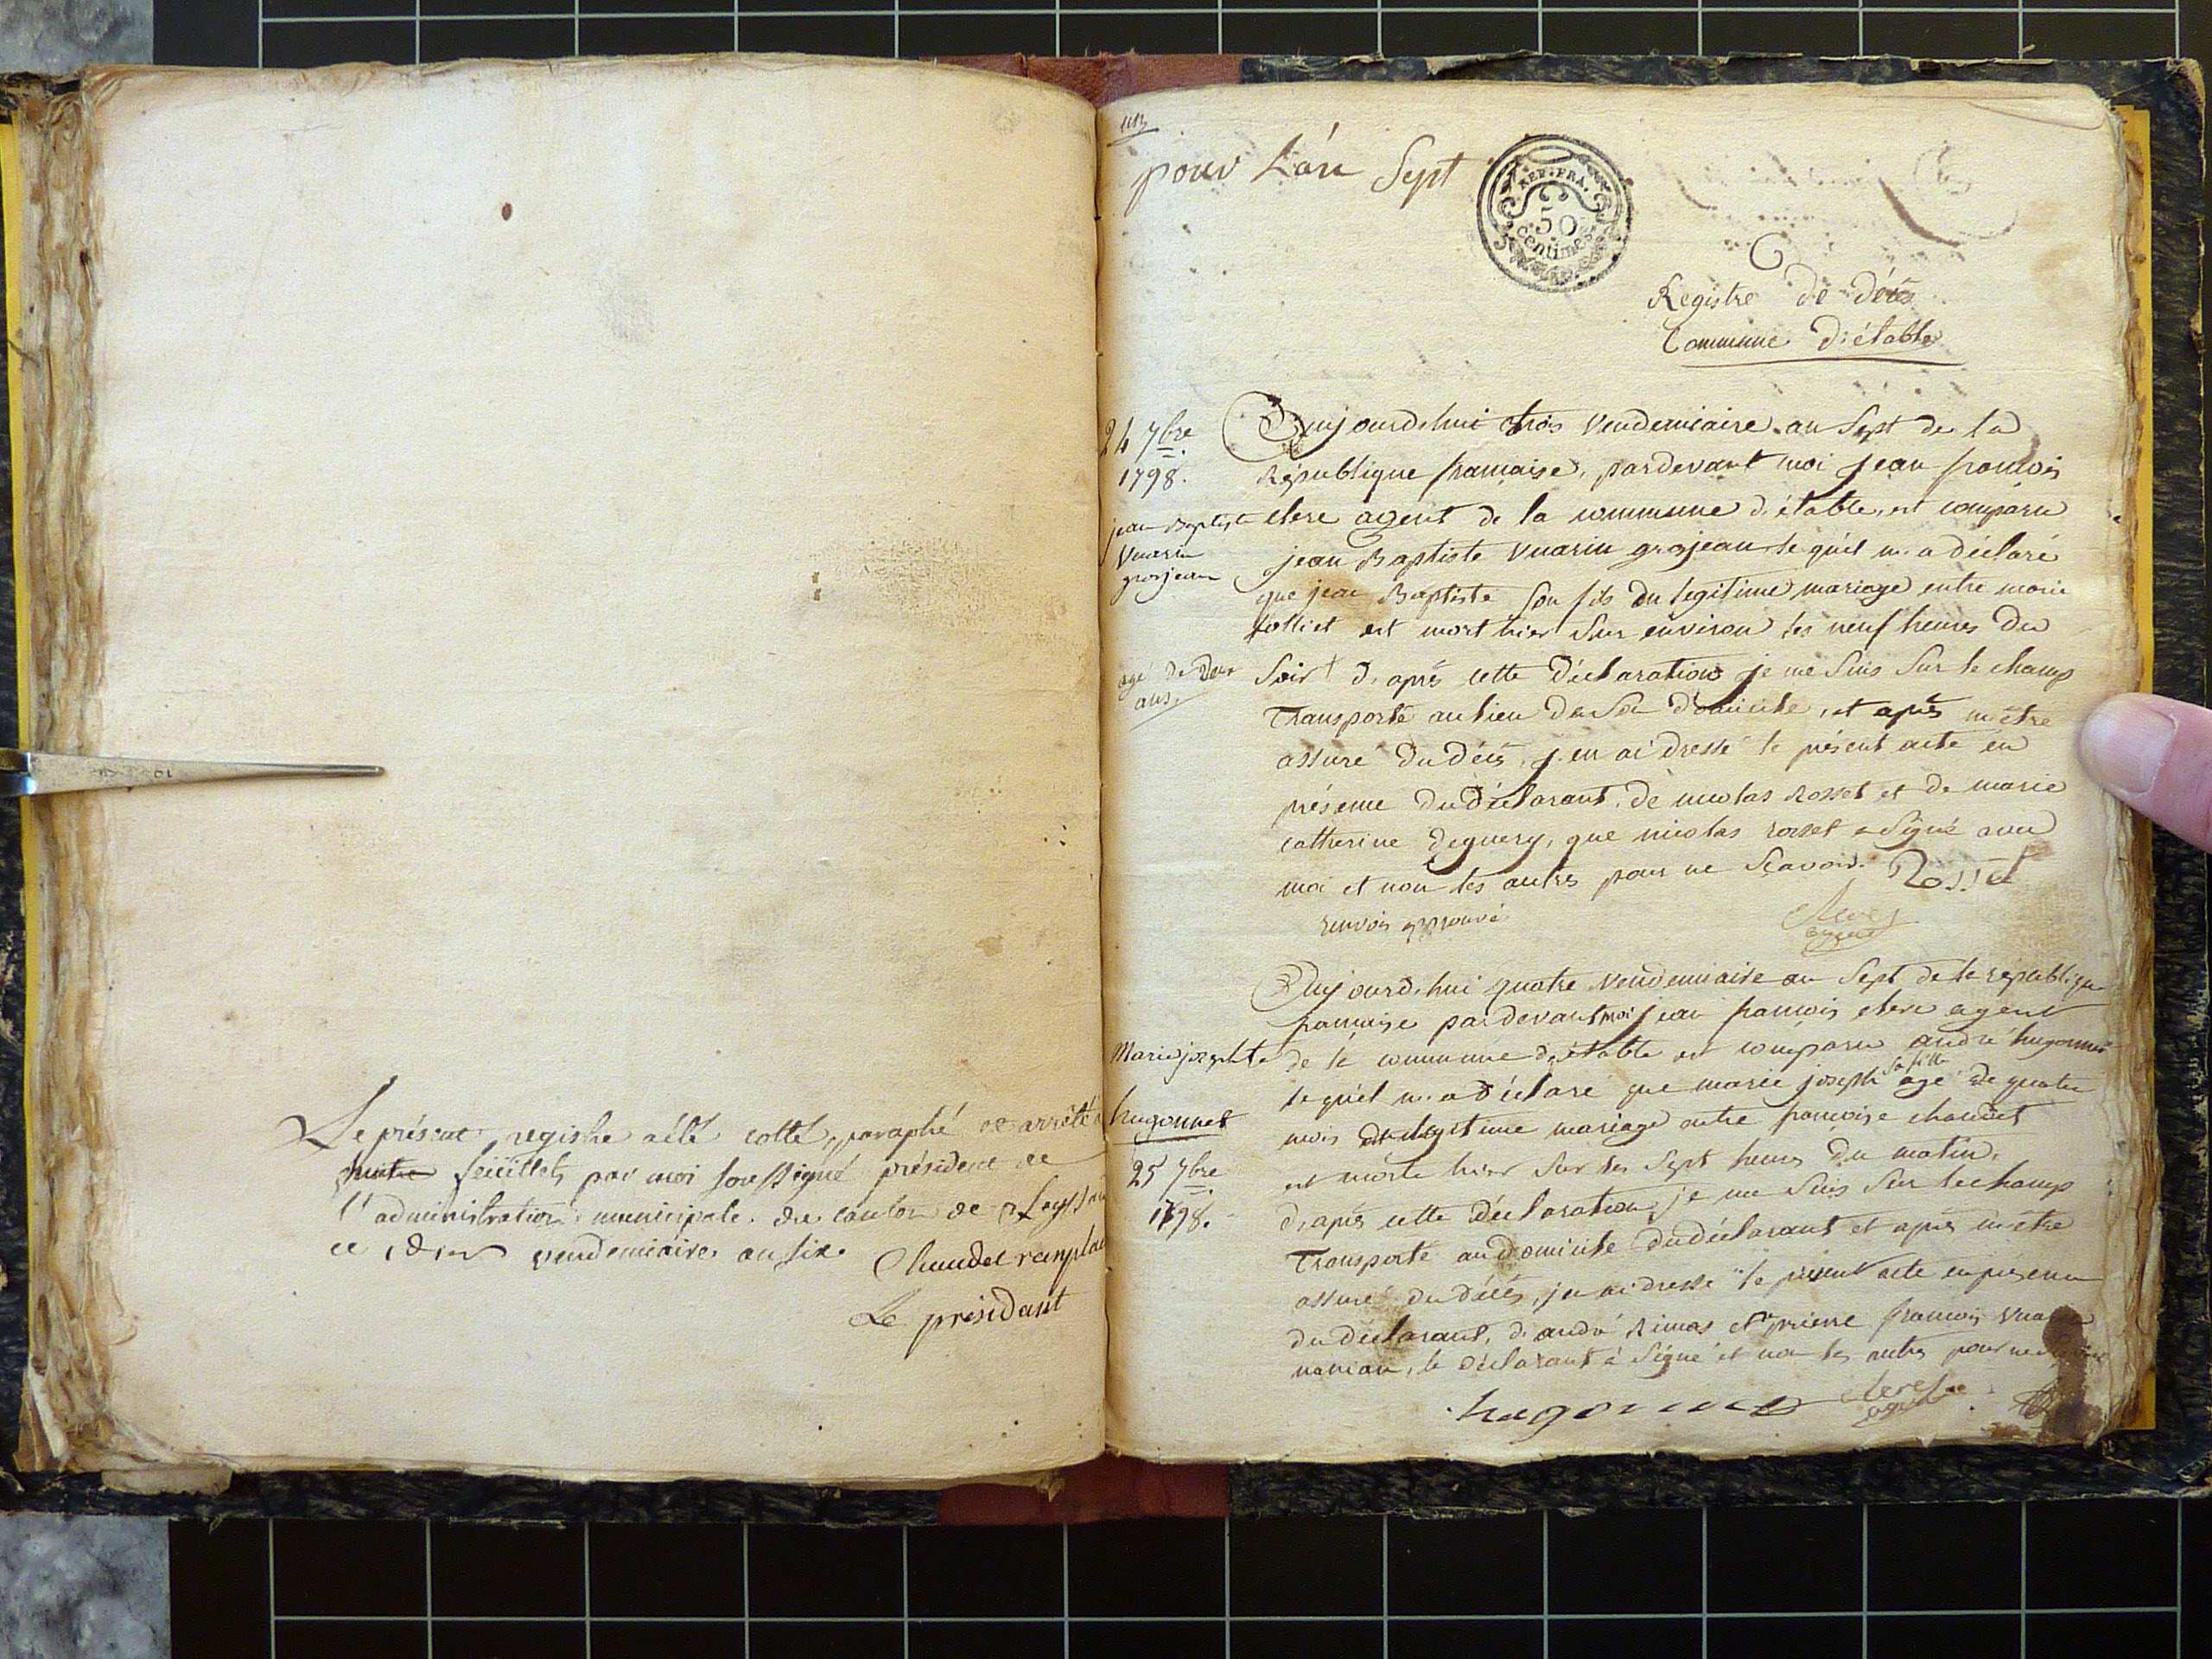 Le présent registre aété cotté, paraphé et arrêté à
feüillets par moi soussigné président de
l'administration municipale du canton de
ce vendemiaire an six
Chaudet
Le présidant
pour L'an Sept
REP. FRA.
50
centimes
Registre de décès
Commune d'étable
24 7bre
1798.
jean Baptiste
Vuarin
grosjean
agé de Deux
ans.
Aujourd'hui trois Vendemiaire an Sept de la
République française, pardevant moi jean françois
clere agent de la commune d'étable, est comparu
jean Baptiste Vuarin grosjean lequel m'a déclaré
que jean Baptiste Son fils du legitime mariage entre marie
folliet est mort hier Sur environ les neuf heures du
Soir d'après cette déclaration je me Suis Sur le champ
Transporté au lieu de Son domicile, et après m'être
assuré du décès, j'en ai dressé le présent acte en
présence du déclarant, de nicolas Rosset et de marie
catherine deguery, que nicolas rosset a Signé avec
moi et non les autres pour ne Sçavoir. Rosset
renvois approuvé
clere
agent
Marie josephte
hugonnet
25 7bre
1798.
Aujourd'hui quatre Vendemiaire an Sept de la république
française pardevant moi jean françois clere agent
de la commune d'étable est comparu andré hugonnet
lequel m'a déclaré que marie joseph sa fille agé de quatre
mois du legitime mariage entre françoise chaudet
est morte hier Sur les Sept heures du matin.
d'après cette déclaration je me Suis Sur lechamp
Transporté au domicile du déclarant et après m'être
assuré du décès, j'en ai dressé le présent acte en présence
du déclarant, d'andré Rimas et pierre françois
le déclarant à Signé et non les autres pour ne
hugonnet clere
agent